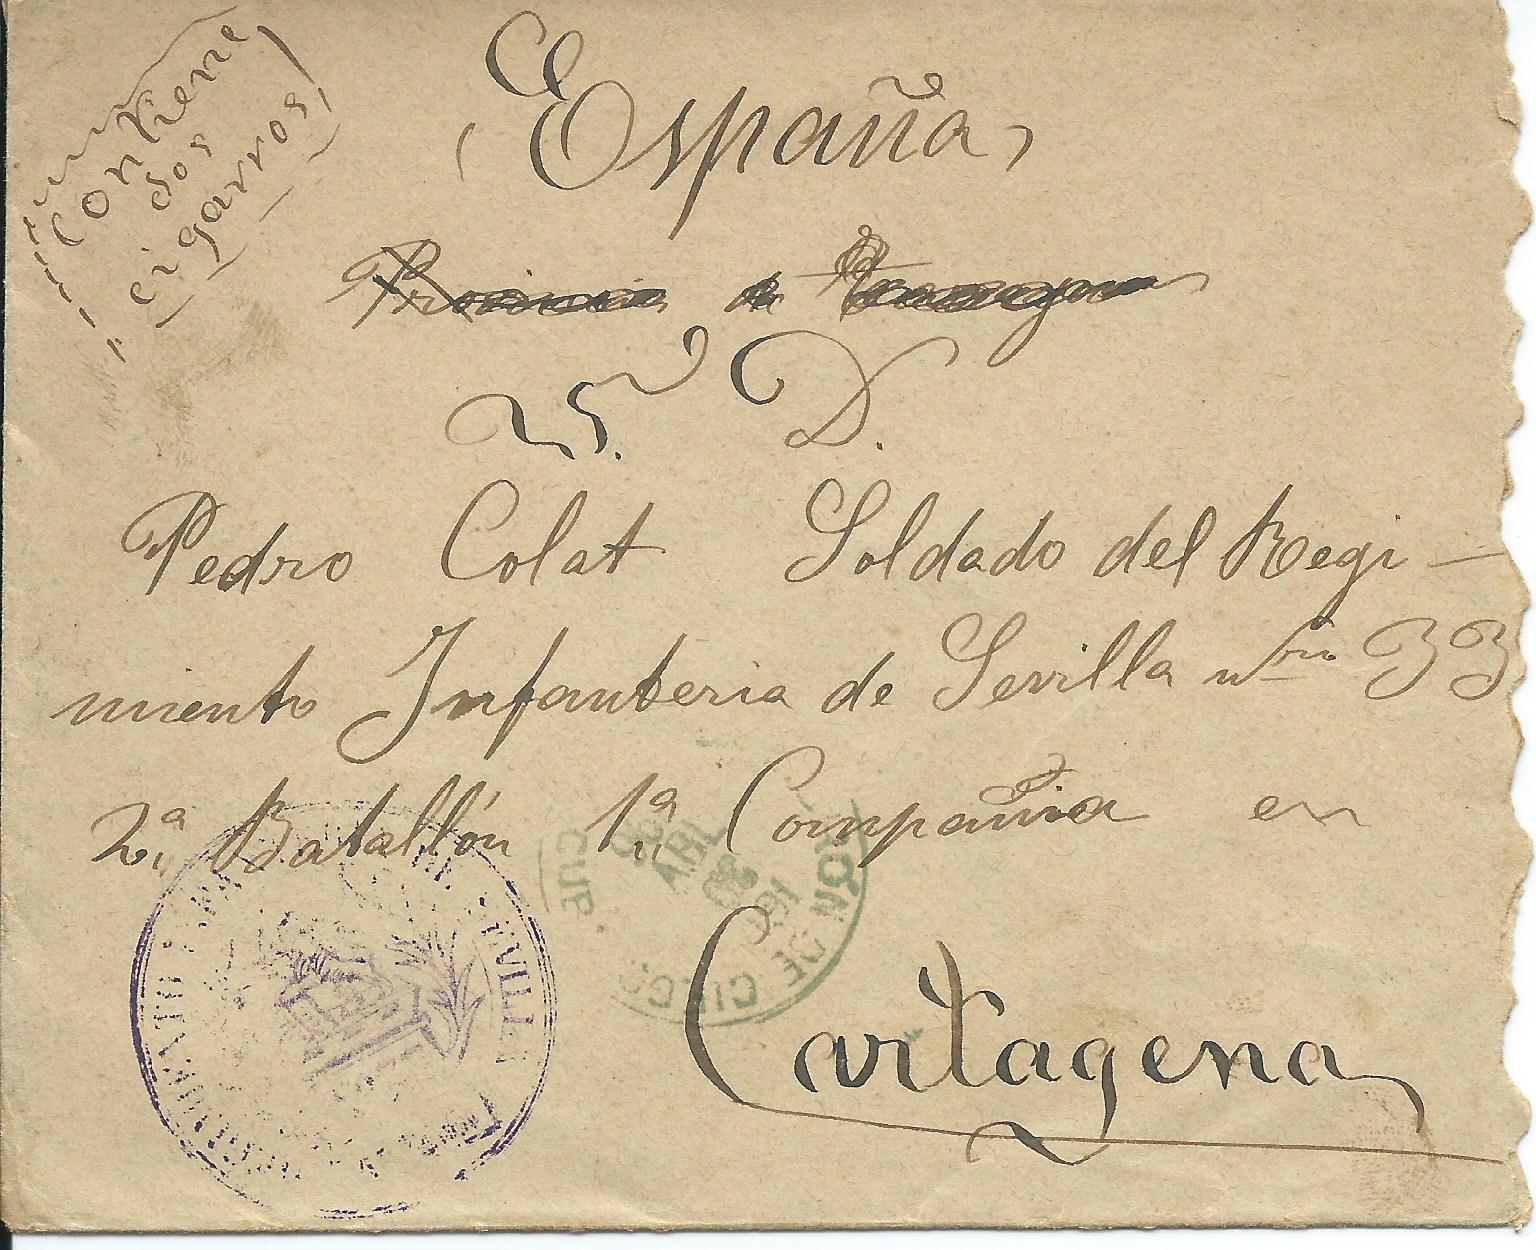 contiene
dos
cigarros
España
Provincia de
S. D.
Pedro Colat Soldado del Regi-
miento Infanteria de Sevilla nro 33
2ª Batallón 1ª Compañia en
Cartagena
ABR
SEVILLA